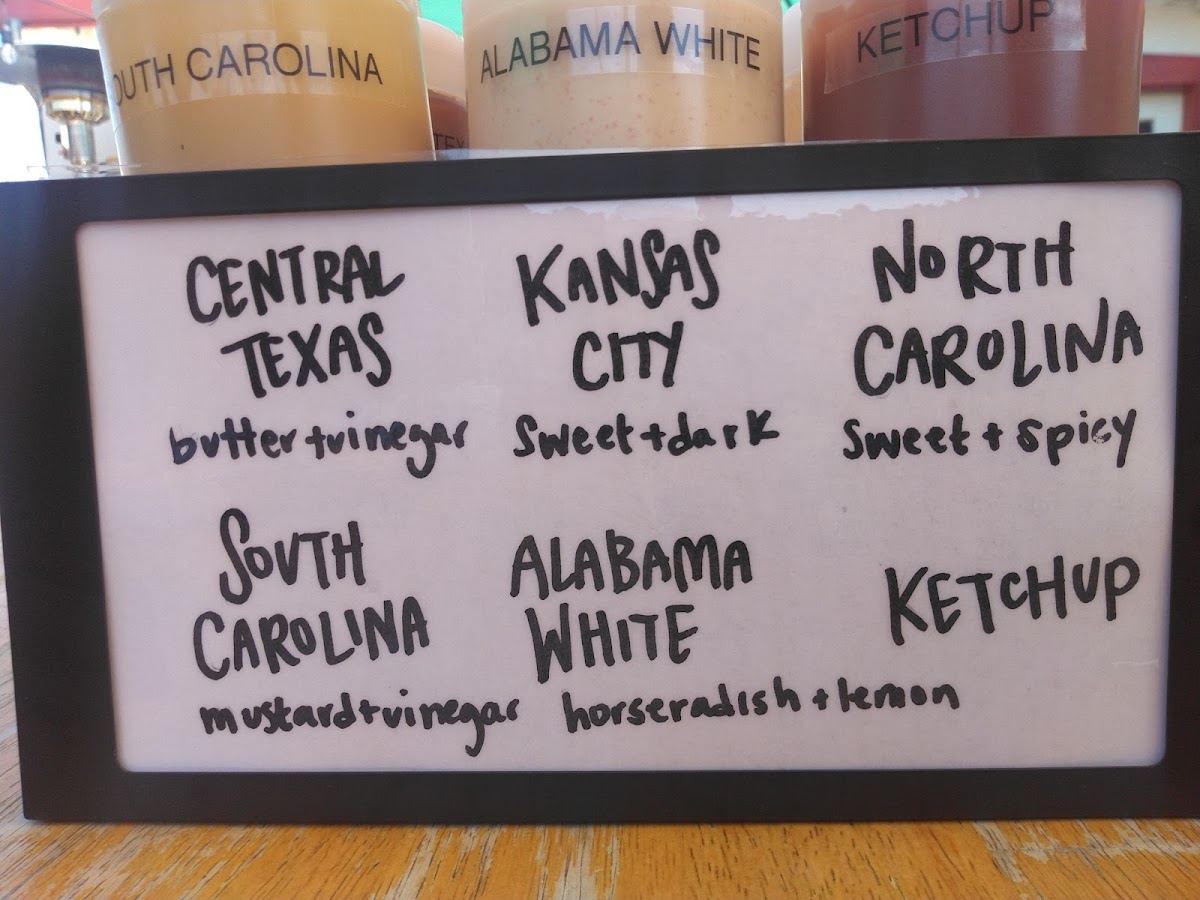 OUTH CAROLINA
ALABAMA WHITE
KETCHUP
TEX
CENTRAL
TEXAS
butter + vinegar
KANSAS
CITY
Sweet + dark
NORTH
CAROLINA
Sweet + spicy
SOUTH
CAROLINA
mustard + vinegar
ALABAMA
WHITE
horseradish + lemon
KETCHUP